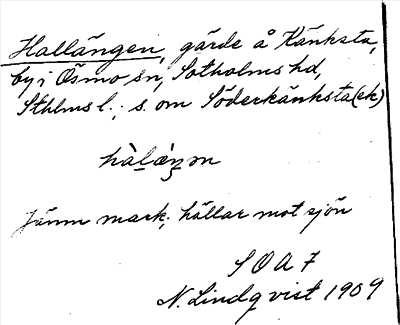 Hallängen, gärde å Känksta,
by i Ösmo sn, Sotholms hd,
Sthlms l.; s. om Söderkänksta (ek)
Jämn mark; hällar mot sjön
S O A 7
N. Lindqvist 1909